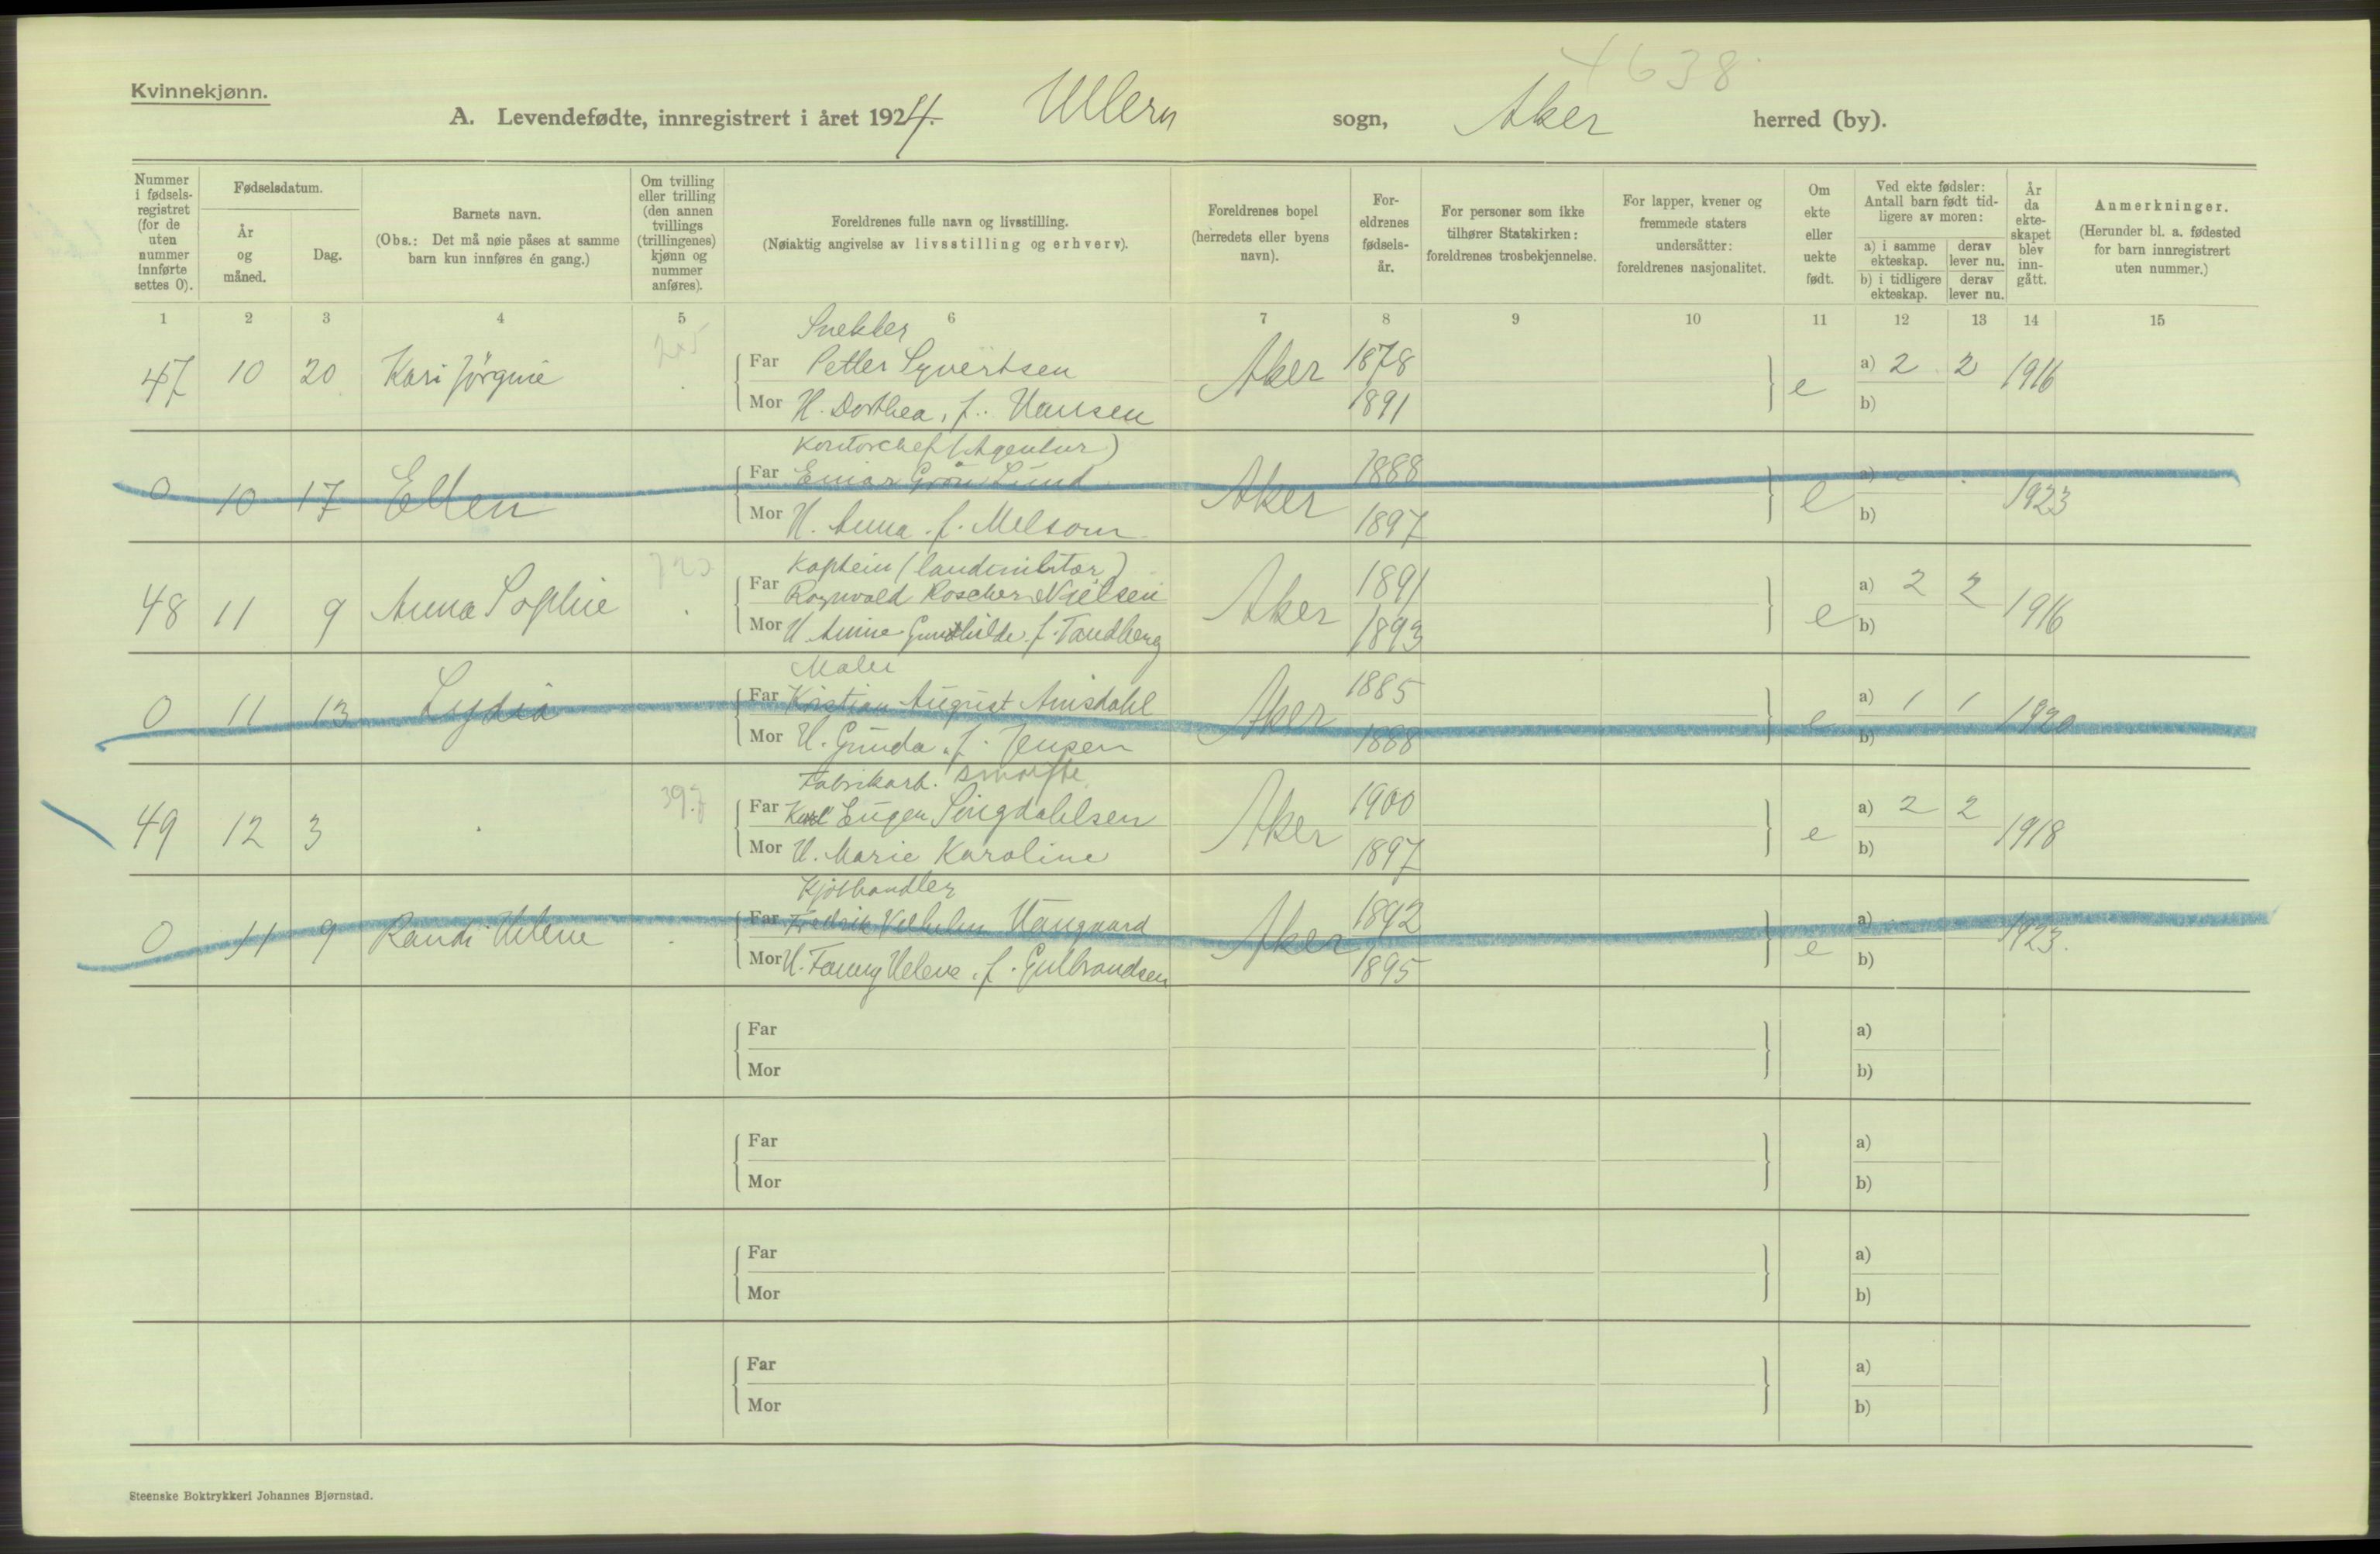 4638
Kvinnekjønn.
A. Levendefødte, innregistrert i året 1924. Ullern sogn, Aker herred (by).
Nummer i fødsels-registret (for de uten nummer innførte settes 0).
Fødselsdatum.
År og måned.
Dag.
Barnets navn.
(Obs.: Det må nøie påses at samme barn kun innføres én gang.)
Om tvilling eller trilling (den annen tvillings (trillingenes) kjønn og nummer anføres).
Foreldrenes fulle navn og livsstilling.
(Nøiaktig angivelse av livsstilling og erhverv).
Foreldrenes bopel (herredets eller byens navn).
For-eldrenes fødsels-år.
For personer som ikke tilhører Statskirken: foreldrenes trosbekjennelse.
For lapper, kvener og fremmede staters undersåtter: foreldrenes nasjonalitet.
Om ekte eller uekte født.
Ved ekte fødsler: Antall barn født tid-ligere av moren:
a) i samme ekteskap.
derav lever nu.
b) i tidligere ekteskap.
derav lever nu.
År da ekte-skapet blev inn-gått.
Anmerkninger.
(Herunder bl. a. fødested for barn innregistrert uten nummer.)
1 2 3 4 5 6 7 8 9 10 11 12 13 14 15
Snekker
47 10 20 Kari Jörgine Far Petter Syvertsen Aker 1878 e a) 2 2 1916
Mor H. Dorthea, f. Hansen 1891 b)
Kontorchef (Agentur)
0 10 17 Ellen Far Einar Grön Lund Aker 1888 e a) 1923
Mor H. Anna f. Melsom 1897 b)
Kaptein (landmilitær)
48 11 9 Anna Sophie Far Ragnvald Roscher Nielsen Aker 1891 e a) 2 2 1916
Mor H. Anine Gunhilde f. Tandberg 1893 b)
Maler
0 11 13 Lydia Far Kristian August Amsdahl Aker 1885 e a) 1 1 1920
Mor H. Gunda f. Jensen 1888 b)
Fabrikarb.
49 12 3 Far Karl Eugen Singdahlsen Aker 1900 e a) 2 2 1918
Mor H. Marie Karoline 1897 b)
Kjöthandler
0 11 9 Randi Helene Far Fredrik Vilhelm Haugaard Aker 1892 e a) 1923.
Mor H. Fanny Helene f. Gulbrandsen 1895 b)
Far a)
Mor b)
Far a)
Mor b)
Far a)
Mor b)
Far a)
Mor b)
Steenske Boktrykkeri Johannes Bjørnstad.